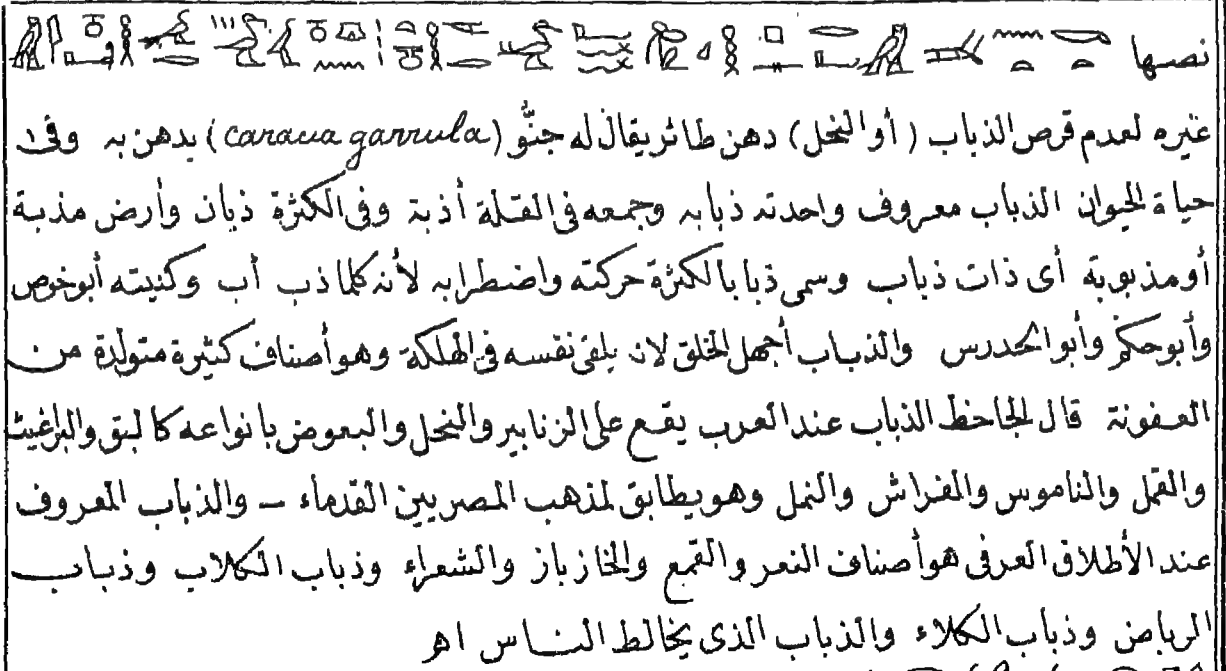 نصها
غيره لعدم قرص الذباب (أو النحل) دهن طائر يقال له جنُّو (caraua garrula) يدهن به وفى
حياة الحيوان الذباب معروف واحدته ذبابه وجمعه فى القلة أذبة وفى الكثرة ذبان وأرض مذبة
أو مذبوبة أى ذات ذباب وسمى ذبابا لكثرة حركته واضطرابه لأنه كلما ذب أب وكنيته أبو خوص
وأبو حكم وأبو الحدرس والذباب أجهل الخلق لانه يلقى نفسه فى الهلكة وهو أصناف كثيرة متولدة من
العفونة قال الجاحظ الذباب عند العرب يقع على الزنابير والنحل والبعوض بانواعه كالبق والبراغيث
والقمل والناموس والفراش والنمل وهو يطابق لمذهب المصريين القدماء – والذباب المعروف
عند الأطلاق العرفى هو أصناف النعر والقمع والخازباز والشعراء وذباب الكلاب وذباب
الرياض وذباب الكلاء والذباب الذى يخالط الناس اهـ